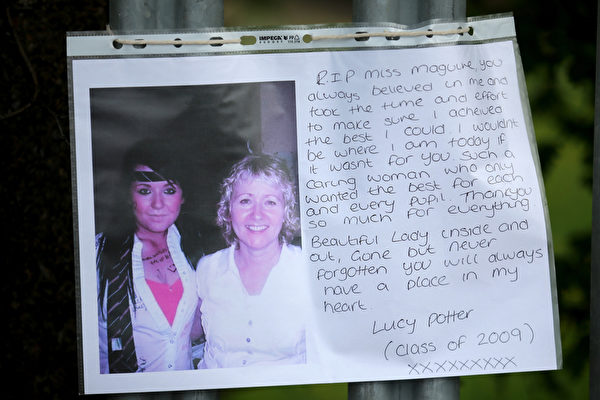 IMPEGA
R.I.P Miss Maguire, you
always believed in me and
took the time and effort
to make sure I acheived
the best I could. I wouldnt
be where I am today if
it wasnt for you. Such a
caring woman who only
wanted the best for each
and every pupil. Thankyou
so much for everything.
Beautiful Lady inside and
out, Gone but never
forgotten you will always
have a place in my
heart.
Lucy Potter
(Class of 2009)
xxxxxxxxx